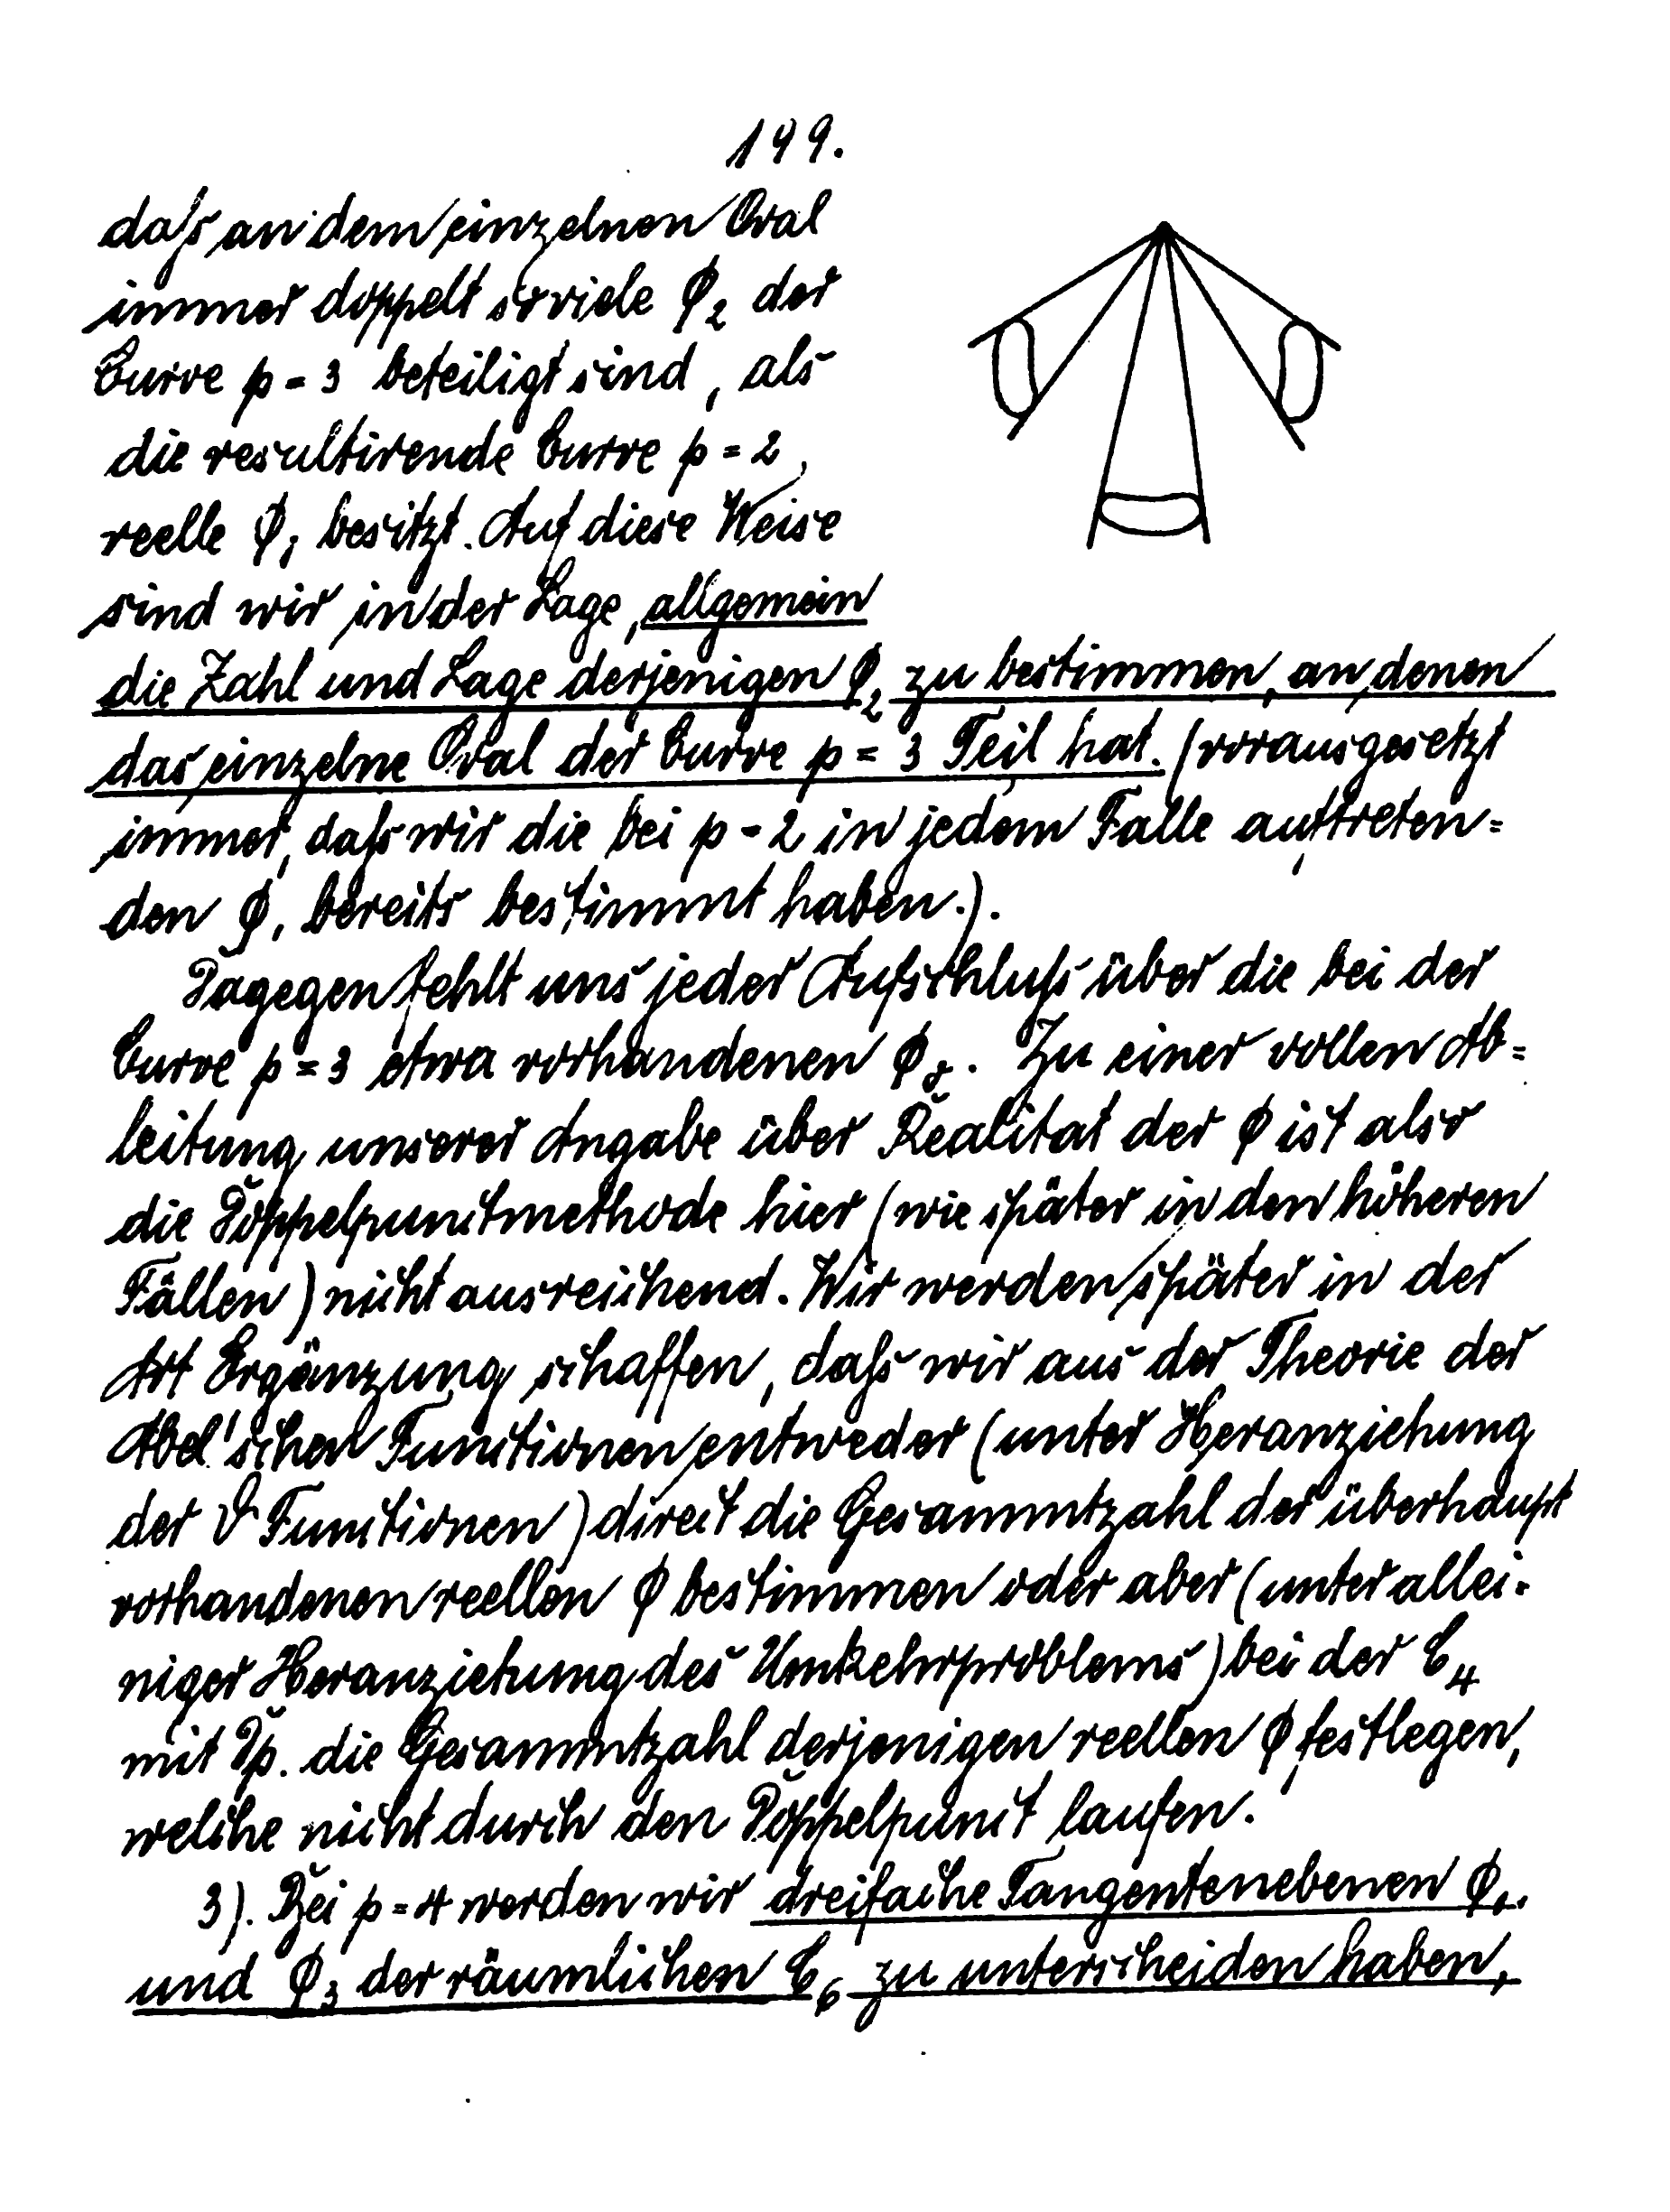 199.
daſs an dem einzelnen Oval
immer doppelt so viele ϕ₂ der
Curve p = 3 beteiligt sind, als
die resultirende Curve p = 2,
reelle ϕ₁ besitzt. Auf diese Weise
sind wir in der Lage, allgemein
die Zahl und Lage derjenigen ϕ₂ zu bestimmen, an denen
das einzelne Oval der Curve p = 3 Teil hat. (vorausgesetzt
immer, daſs wir die bei p = 2 in jedem Falle auftreten=
den ϕ₁ bereits bestimmt haben.).
Dagegen fehlt uns jeder Aufschluſs über die bei der
Curve p = 3 etwa vorhandenen ϕ₀. Zu einer vollen Ab=
leitung unserer Angabe über Realität der ϕ ist also
die Doppelpunctmethode hier (wie später in den höheren
Fällen) nicht ausreichend. Wir werden später in der
Art Ergänzung schaffen, daſs wir aus der Theorie der
Abel'schen Functionen entweder (unter Heranziehung
der ϑ Functionen) direct die Gesammtzahl der überhaupt
vorhandenen reellen ϕ bestimmen oder aber (unter allei=
niger Heranziehung des Umkehrproblems) bei der C₄
mit Dp. die Gesammtzahl derjenigen reellen ϕ festlegen,
welche nicht durch den Doppelpunct laufen.
3). Bei p = 4 werden wir dreifache Tangentenebenen ϕ₁
und ϕ₃ der räumlichen C₆ zu unterscheiden haben,